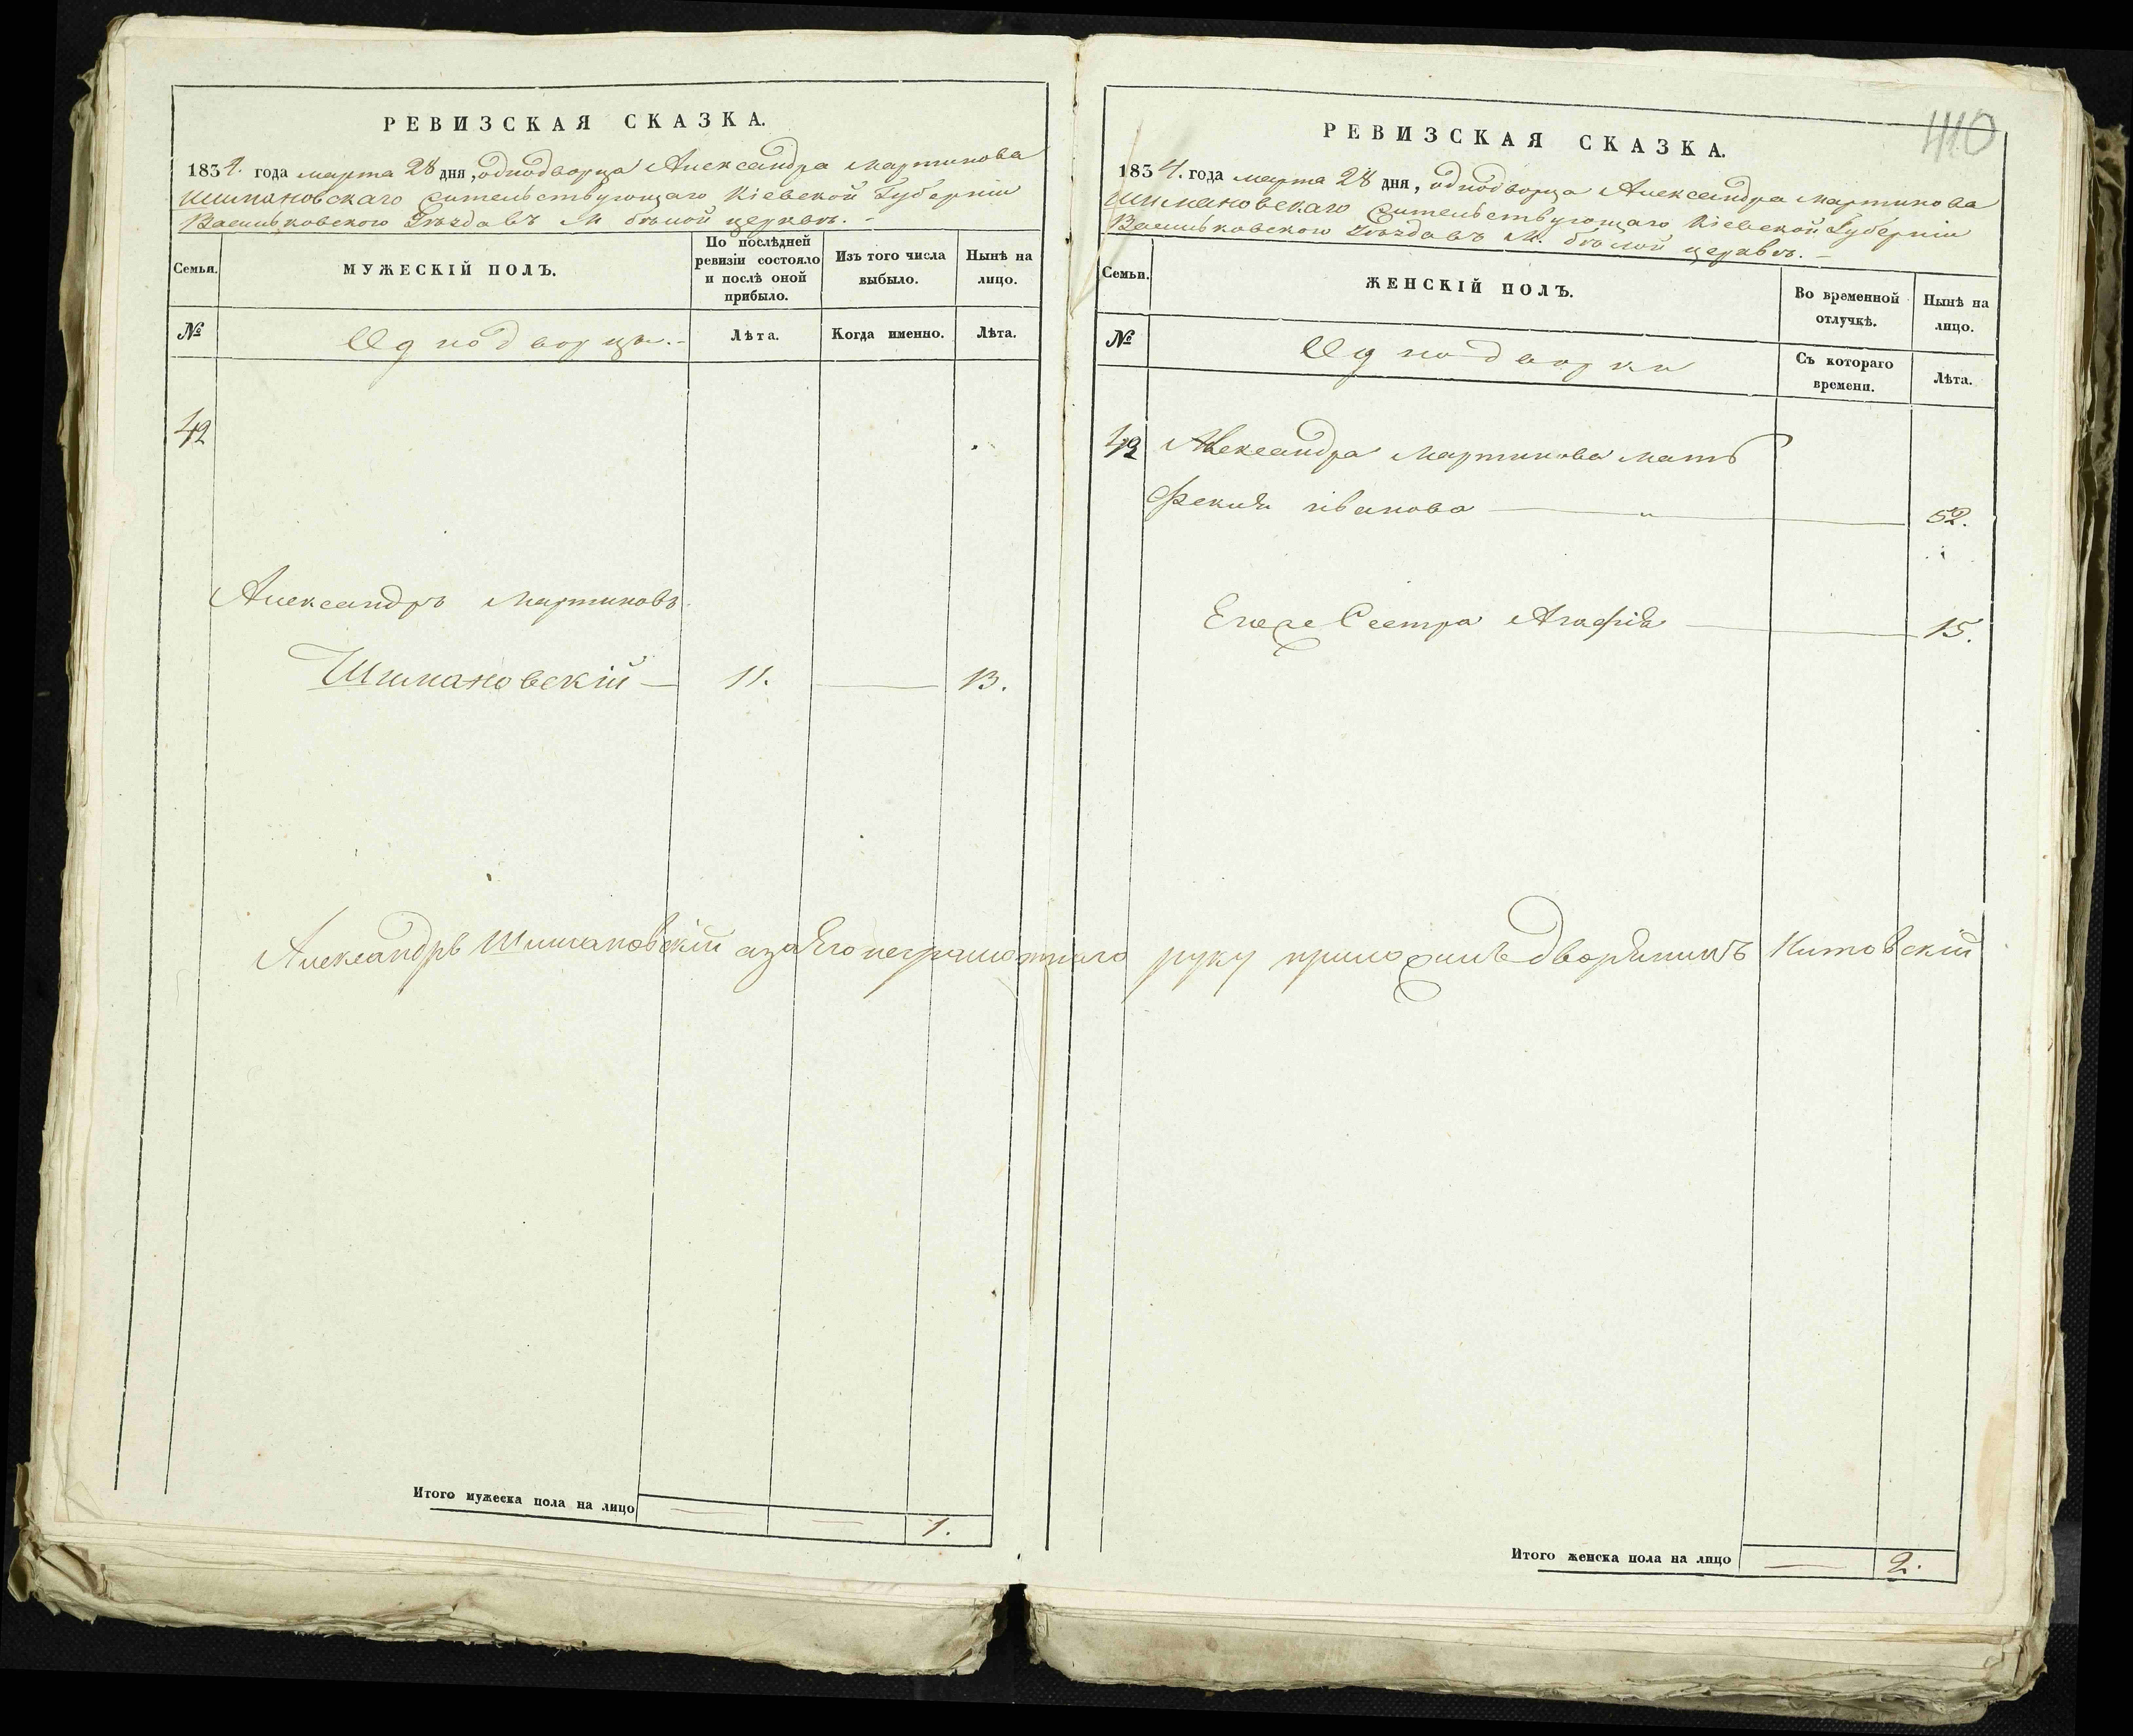 РЕВИЗСКАЯ СКАЗКА.
1834. года марта 28 дня, однодворца Александра Мартинова
Шимановскаго Жительствующаго Кіевской Губерніи
Васильковского Уезда въ М белой церкве.
Семьи.
МУЖЕСКІЙ ПОЛЪ.
По послѣдней ревизіи состояло и послѣ оной прибыло.
Изъ того числа выбыло.
Нынѣ на лицо.
№
Однодворцы.
Лѣта.
Когда именно.
Лѣта.
42
Александръ Мартиновъ
Шимановскій — 11. — 13.
Итого мужеска пола на лицо — — 1.
410
РЕВИЗСКАЯ СКАЗКА.
1834. года марта 28 дня, однодворца Александра Мартинова
Шимановскаго Жительствующаго Кіевской Губерніи
Васильковского Уезда въ М. белой церкве.
Семьи.
ЖЕНСКІЙ ПОЛЪ.
Во временной отлучкѣ.
Нынѣ на лицо.
№
Однодворки
Съ котораго времени.
Лѣта.
42 Александра Мартинова мать
Фекла иванова — 52.
Егоже Сестра Агафія — 15.
Александръ Шимановскій а за Его неграмотного руку приложилъ дворянинъ Китовскій
Итого женска пола на лицо — 2.